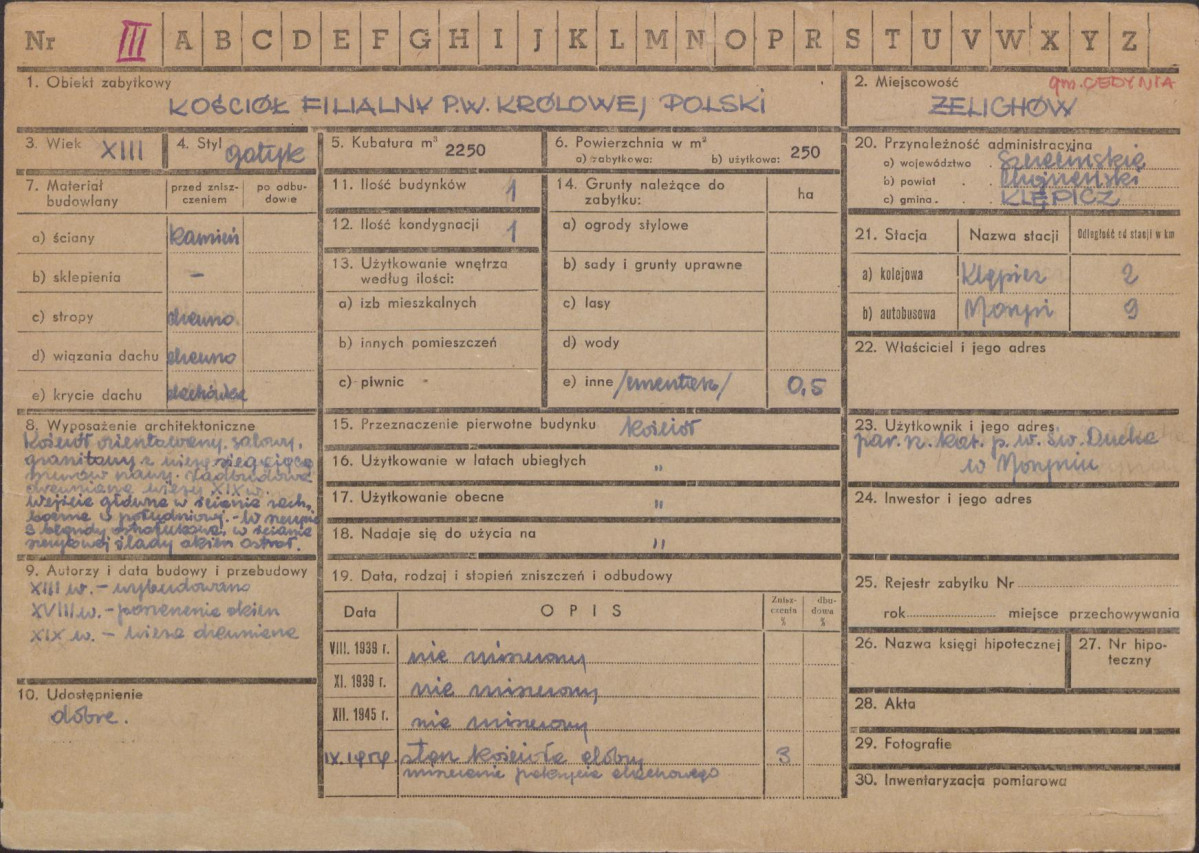 Nr III A B C D E F G H I J K L M N O P R S T U V W X Y Z
1. Obiekt zabytkowy
KOŚCIÓŁ FILIALNY P.W. KRÓLOWEJ POLSKI
2. Miejscowość gm. CEDYNIA
ŻELICHÓW
3. Wiek XIII
4. Styl gotyk
5. Kubatura m³ 2250
6. Powierzchnia w m²
a) zabytkowa: b) użytkowa: 250
7. Materiał budowlany
przed zniszczeniem
po odbudowie
a) ściany kamień
b) sklepienia -
c) stropy drewno
d) wiązania dachu drewno
e) krycie dachu dachówka
8. Wyposażenie architektoniczne
Kościół orientowany, salowy,
granitowy z wieżą
nawy. Nadbudowa
drewniana wieży XIX w.
Wejście główne w ścianie zach.
boczne w południowej. - W
3 blendy ostrołukowe, w ścianie
ślady okien ostroł.
9. Autorzy i data budowy i przebudowy
XIII w. - wybudowano
XVIII w. - poszerzenie okien
XIX w. - wieża drewniana
10. Udostępnienie
dobre.
11. Ilość budynków 1
12. Ilość kondygnacji 1
13. Użytkowanie wnętrza
według ilości:
a) izb mieszkalnych
b) innych pomieszczeń
c) piwnic
14. Grunty należące do
zabytku:
ha
a) ogrody stylowe
b) sady i grunty uprawne
c) lasy
d) wody
e) inne /cmentarz/ 0,5
15. Przeznaczenie pierwotne budynku kościół
16. Użytkowanie w latach ubiegłych "
17. Użytkowanie obecne "
18. Nadaje się do użycia na "
19. Data, rodzaj i stopień zniszczeń i odbudowy
Data OPIS Zniszczenia % dbudowa %
VIII. 1939 r. nie niszczony
XI. 1939 r. nie niszczony
XII. 1945 r. nie niszczony
IX. 1959. stan kościoła dobry 3
zniszczenie pokrycia dachowego
20. Przynależność administracyjna
a) województwo Szczecińskie
b) powiat Chojeński
c) gmina KLĘPICZ
21. Stacja Nazwa stacji Odległość od stacji w km
a) kolejowa Klępicz 2
b) autobusowa Moryń 9
22. Właściciel i jego adres
23. Użytkownik i jego adres
par. rz. kat. p.w. Św. Ducha
w Moryniu
24. Inwestor i jego adres
25. Rejestr zabytku Nr
rok miejsce przechowywania
26. Nazwa księgi hipotecznej
27. Nr hipoteczny
28. Akta
29. Fotografie
30. Inwentaryzacja pomiarowa